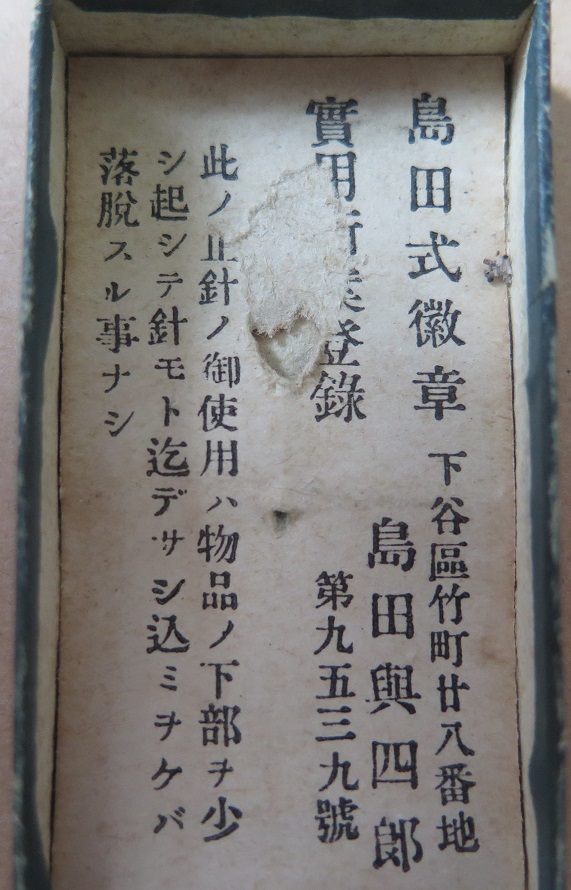 島田式徽章 下谷區竹町廿八番地
島田與四郎
實用新案登錄 第九五三九號
此ノ止針ノ御使用ハ物品ノ下部ヲ少
シ起シテ針モト迄デサシ込ミヲケバ
落脫スル事ナシ